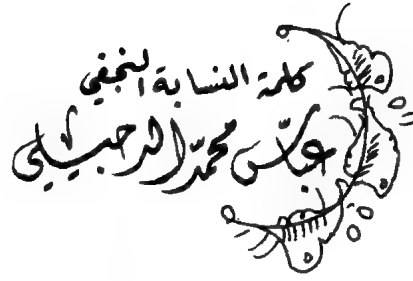 كلمة النسابة النجفي
عباس محمد الدجيلي